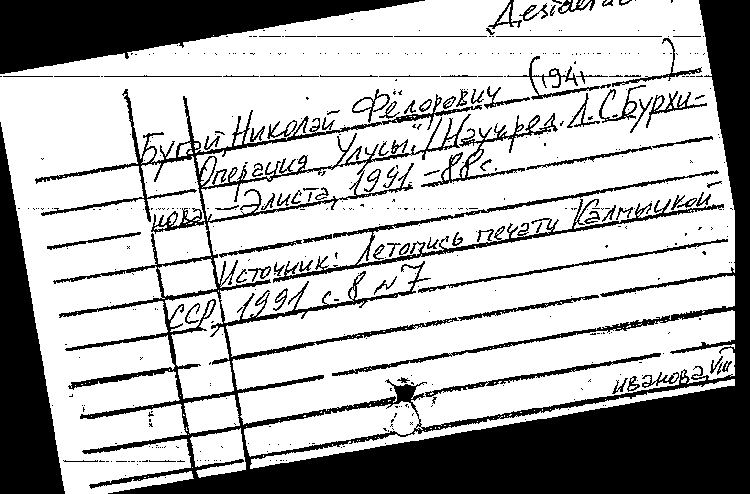 Desidera
(1941 )
Бугай, Николай Фёдорович
Операция „Улусы“. / Науч. ред. Л.С. Бурчи-
нова. – Элиста, 1991. – 88 с.
Источник: Летопись печати Калмыцкой
ССР, 1991, с. 8, № 7
Иванова, VIII